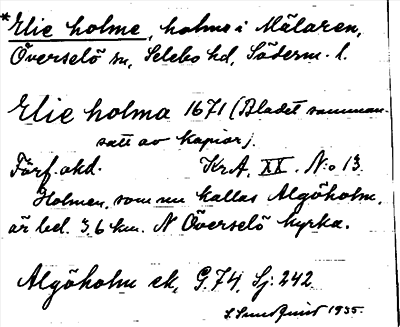 *Elie holme, holme i Mälaren,
Överselö sn, Selebo hd, Söderm. l.
Elie holma 1671 (Bladet samman-
satt av kapior).
Förf. okd. KrA, XX. N:o 13.
Holmen, som nu kallas Algöholm,
är bel. 3,6 km. N Överselö kyrka.
Algöholm ek, G.74, Sj. 242.
1935.